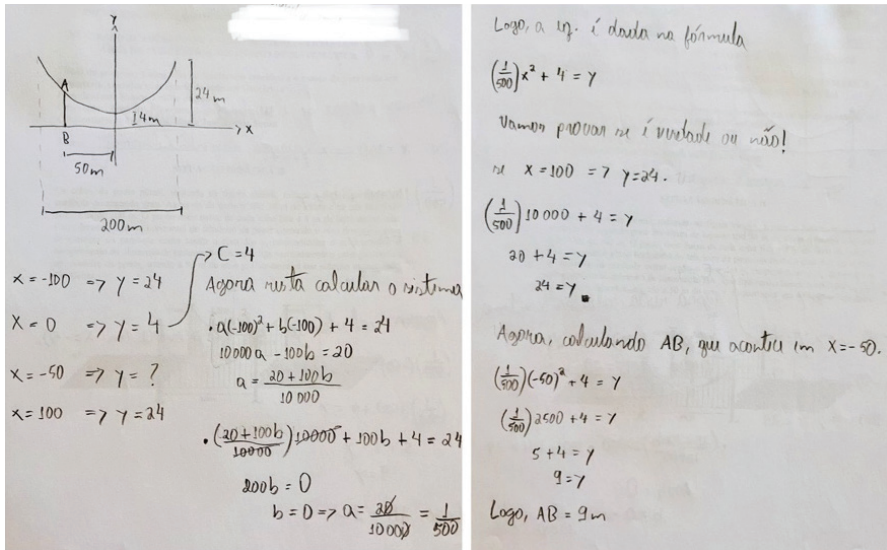 y
A
B
24m
14m
x
50m
200m
x = -100 => y = 24
x = 0 => y = 4
x = -50 => y = ?
x = 100 => y = 24
→ C = 4
Agora resta calcular o sistema
• a(-100)² + b(-100) + 4 = 24
10000a - 100b = 20
a = (20 + 100b)/10 000
• ((20+100b)/10000)10000 + 100b + 4 = 24
200b = 0
b = 0 => a = 20/10000 = 1/500
Logo, a eq. é dada na fórmula
(1/500)x² + 4 = y
Vamos provar se é verdade ou não!
se x = 100 => y = 24.
(1/500)10 000 + 4 = y
20 + 4 = y
24 = y
Agora, calculando AB, que acontece em x = -50.
(1/500)(-50)² + 4 = y
(1/500)2500 + 4 = y
5 + 4 = y
9 = y
Logo, AB = 9m